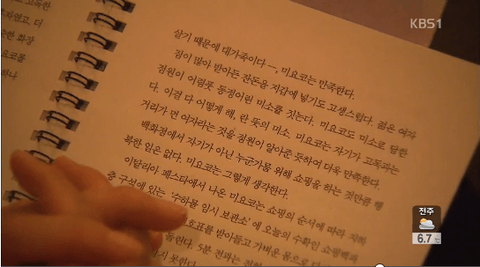 KBS1
살기 때문에 대가족이다―, 미요코는 만족한다.
짐이 많아 받아든 잔돈을 지갑에 넣기도 고생스럽다. 젊은 여자
점원이 어렴풋 동정어린 미소를 짓는다. 미요코도 미소로 답한
다. 이걸 다 어떻게 해, 란 뜻의 미소. 미요코는 자기가 고독과는
거리가 먼 여자라는 것을 점원이 알아준 듯하여 더욱 만족한다.
백화점에서 자기가 아닌 누군가를 위해 쇼핑을 하는 것만큼 행
복한 일은 없다. 미요코는 그렇게 생각한다.
이탈리아 페스타에서 나온 미요코는 쇼핑의 순서에 따라 지하
층 구석에 있는 '수하물 임시 보관소'에 오늘의 수확인 쇼핑백과
호표를 받아들고 가벼운 몸으로 다
들린다. 5분 전과는 전혀
지 못한다.
전주
6.7